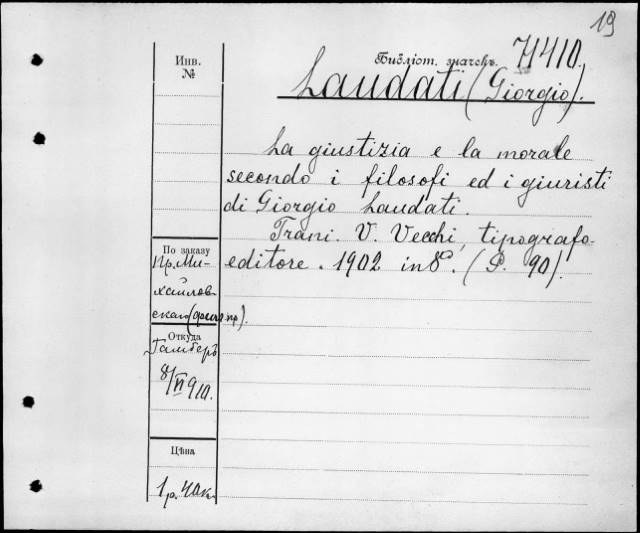 19
Инв.
№
Библіот. значекъ. 71410.
Laudati (Giorgio).
La giustizia e la morale
secondo i filosofi ed i giuristi
di Giorgio Laudati.
Trani. V. Vecchi, tipografo-
editore. 1902 in 8º. (P. 90).
По заказу
Пр. Ми-
хайлов-
скаго
Откуда
Гамберъ
8/VI 910.
Цѣна
1 р. 40 к.